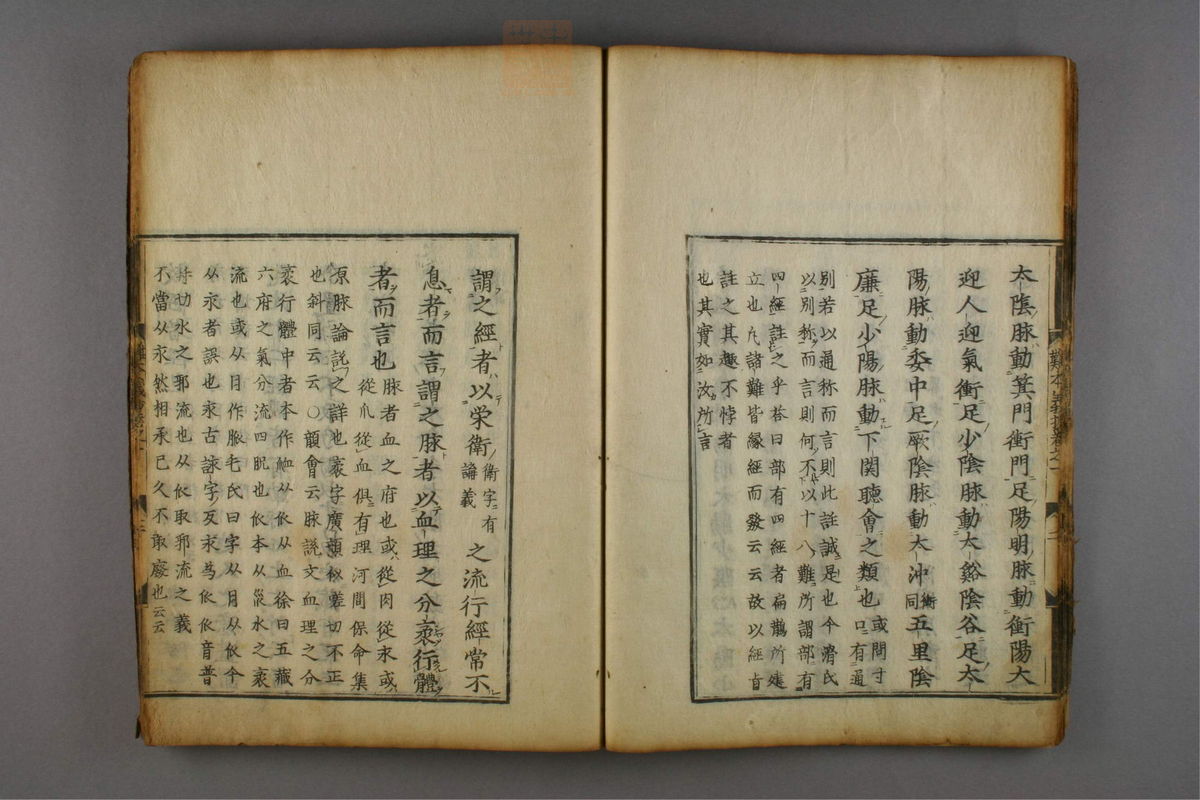 太陰脉動箕門衝門足陽明脉動衝陽大
迎人迎氣衝足少陰脉動太谿陰谷足太
陽脉動委中足厥陰脉動太冲衝同五里陰
廉足少陽脉動下関聽會之類也或問寸口有通
別若以通称而言則此註誠是也今滑氏
以別称而言則何不以十八難所謂部有
四經註之乎荅曰部有四經者扁鵲所建
立也凢諸難皆縁經而發云云故以經旨
註之其趣不悖者
也其實如汝所言
謂之經者以栄衛衛字有論義之流行經常不
息者而言謂之脉者以血理之分衺行體
者而言也脉者血之府也或從肉從永或
從爪從血俱有理河間保命集
原脉論説之詳也衺字廣韻似嗟切不正
也斜同云云○韻會云脉説文血理之分
衺行體中者本作衇从𠂢从血徐曰五藏
六府之氣分流四肢也𠂢本从巛水之衺
流也或从月作脈毛氏曰字从月从𠂢今
从永者誤也永古詠字反永爲𠂢𠂢音普
拜切水之邪流也从𠂢取邪流之義
不當从永然相承已久不敢廢也云云